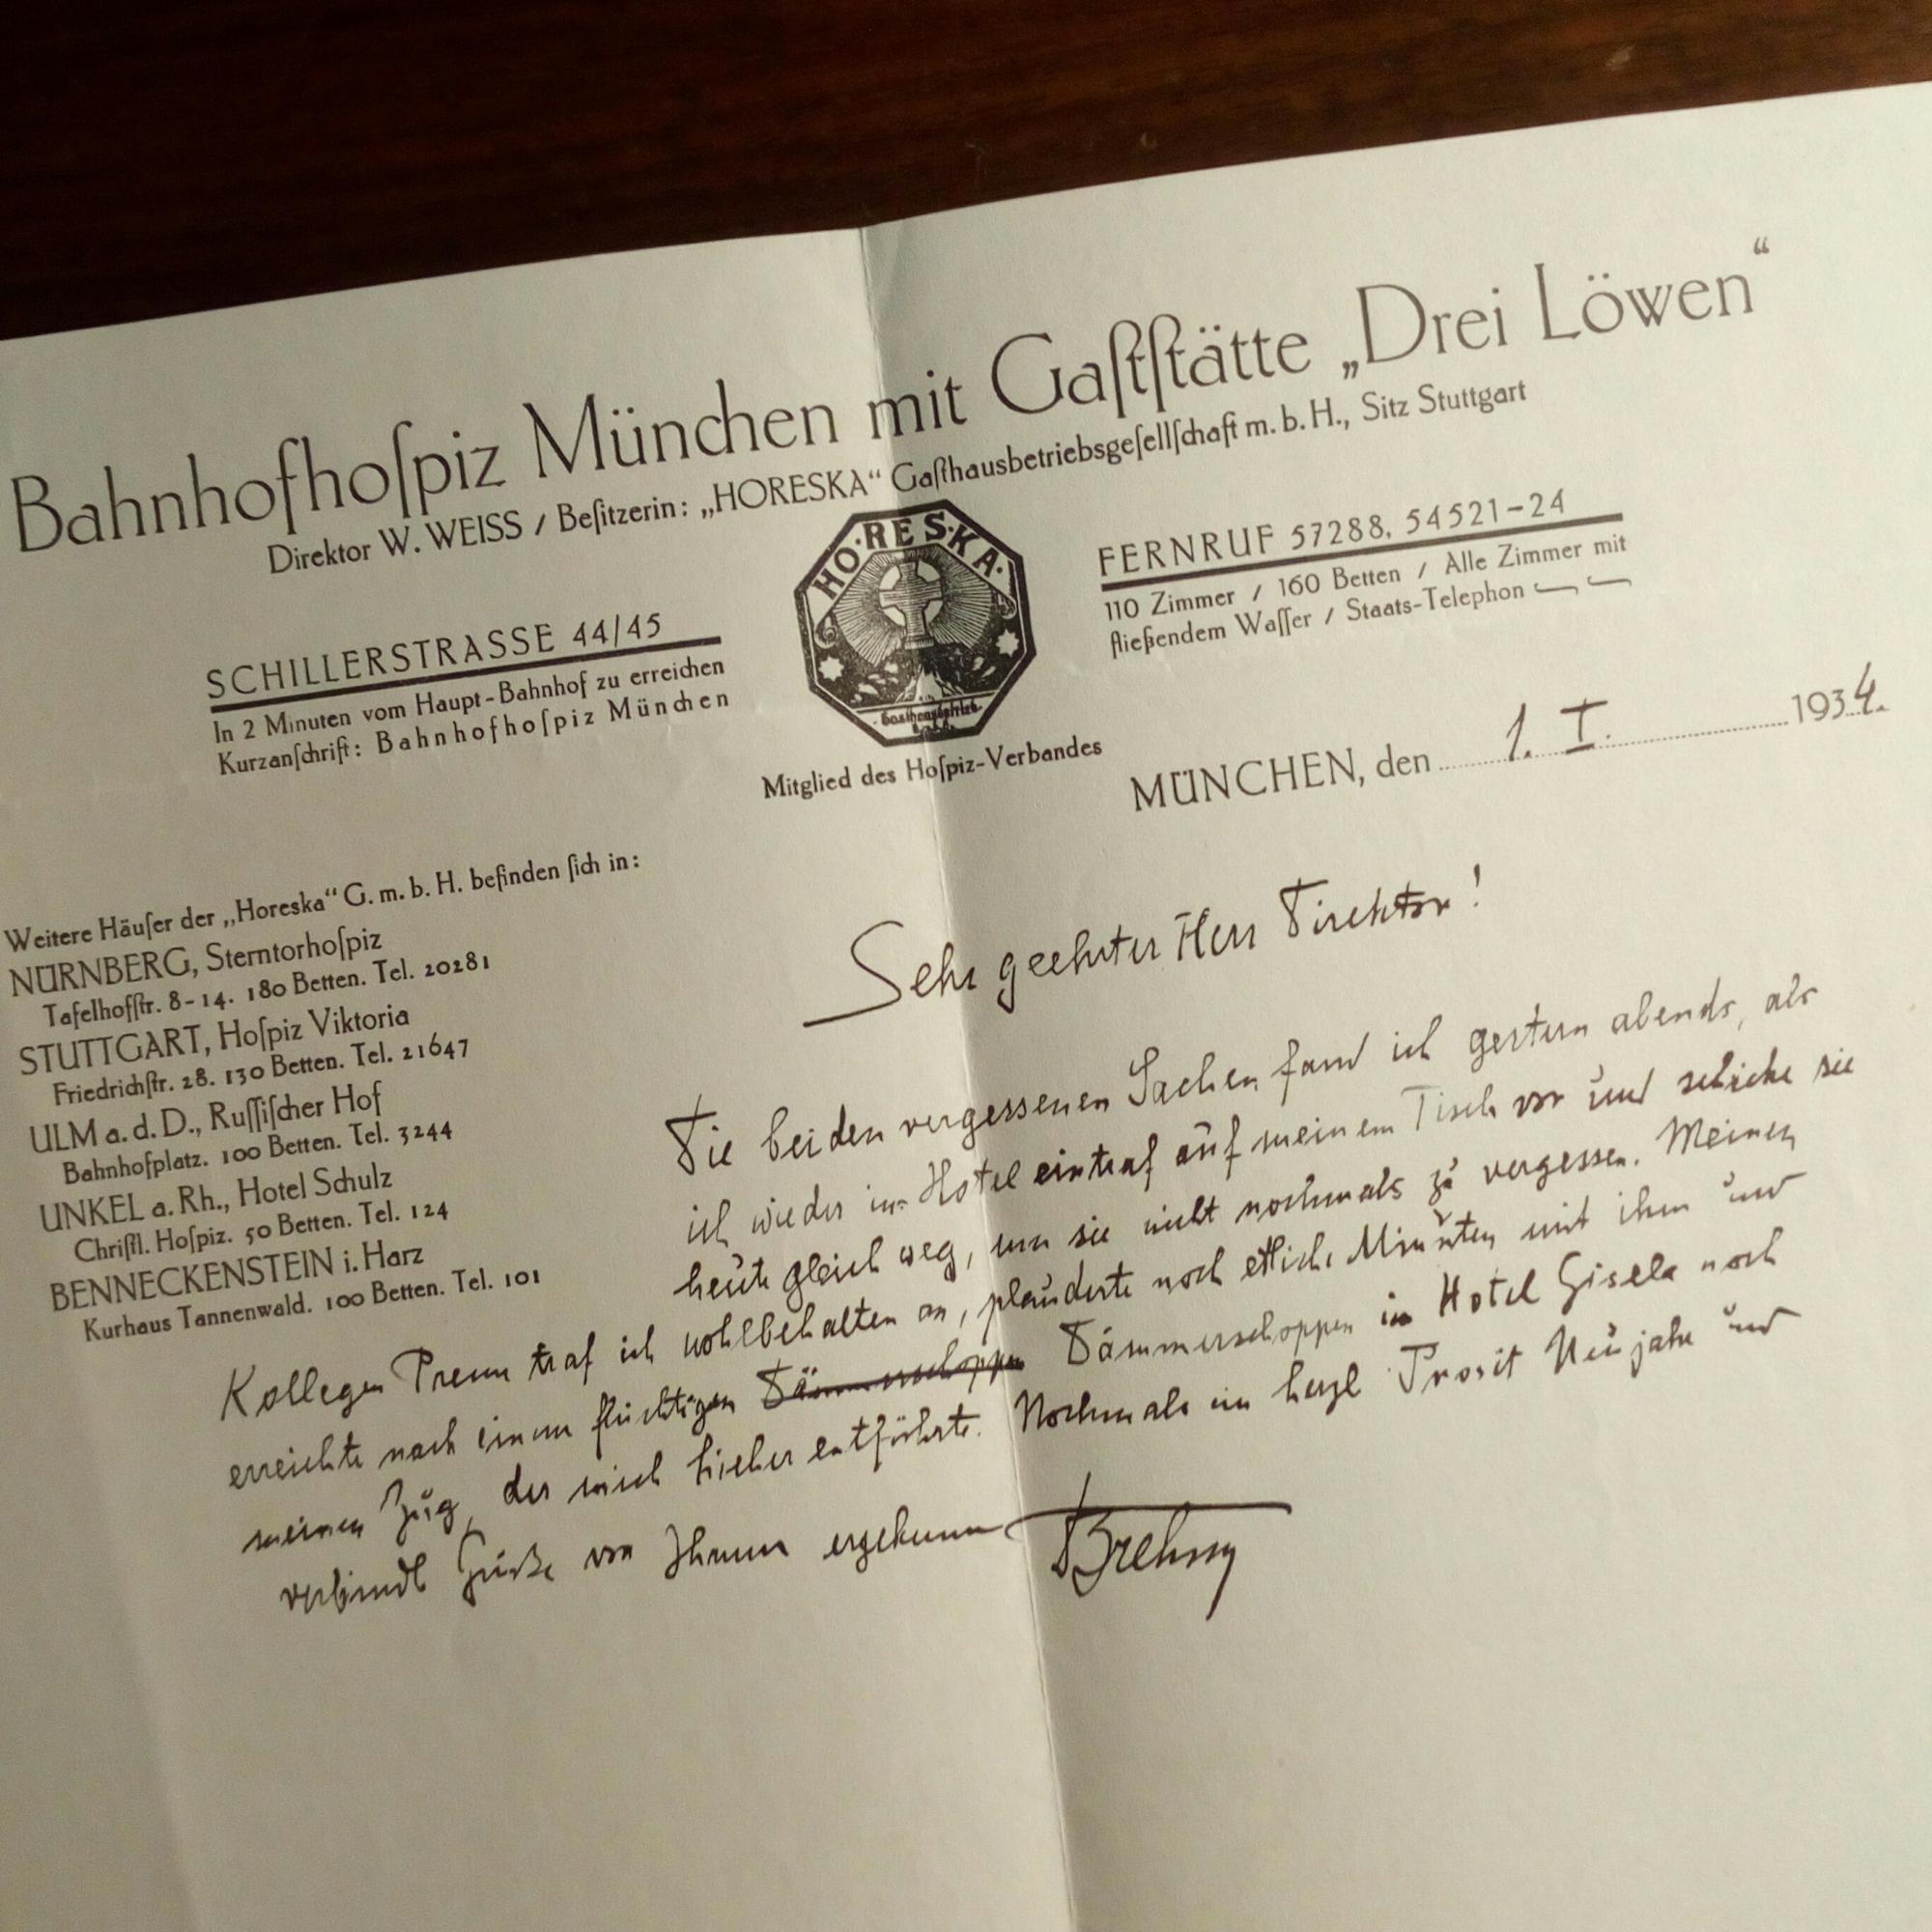 Bahnhofhoſpiz München mit Gaſtſtätte „Drei Löwen“
Direktor W. WEISS / Beſitzerin: „HORESKA“ Gaſthausbetriebsgeſellſchaft m. b. H., Sitz Stuttgart
SCHILLERSTRASSE 44/45
In 2 Minuten vom Haupt-Bahnhof zu erreichen
Kurzanſchrift: Bahnhofhoſpiz München
HO·RES·KA·
Mitglied des Hoſpiz-Verbandes
FERNRUF 57288, 54521-24
110 Zimmer / 160 Betten / Alle Zimmer mit
fließendem Waſſer / Staats-Telephon
MÜNCHEN, den 1. I. 1934.
Weitere Häuſer der „Horeska“ G. m. b. H. befinden ſich in:
NÜRNBERG, Sterntorhoſpiz
Tafelhofſtr. 8-14. 180 Betten. Tel. 20281
STUTTGART, Hoſpiz Viktoria
Friedrichſtr. 28. 130 Betten. Tel. 21647
ULM a. d. D., Ruſſiſcher Hof
Bahnhofplatz. 100 Betten. Tel. 3244
UNKEL a. Rh., Hotel Schulz
Chriſtl. Hoſpiz. 50 Betten. Tel. 124
BENNECKENSTEIN i. Harz
Kurhaus Tannenwald. 100 Betten. Tel. 101
Sehr geehrter Herr Direktor!
Die beiden vergessenen Sachen fand ich gestern abends, als
ich wieder im Hotel eintraf auf meinem Tisch vor und schicke sie
heute gleich weg, um sie nicht nochmals zu vergessen. Meinen
Kollegen traf ich wohlbehalten an, plauderte noch etliche Minuten mit ihm und
erreichte nach einem flüchtigen Dämmerschoppen Dämmerschoppen im Hotel Gisela noch
meinen Zug, der mich hieher entführte. Nochmals ein herzl Prosit Neujahr und
verbindl Grüße von Ihrem ergebenen Brehm